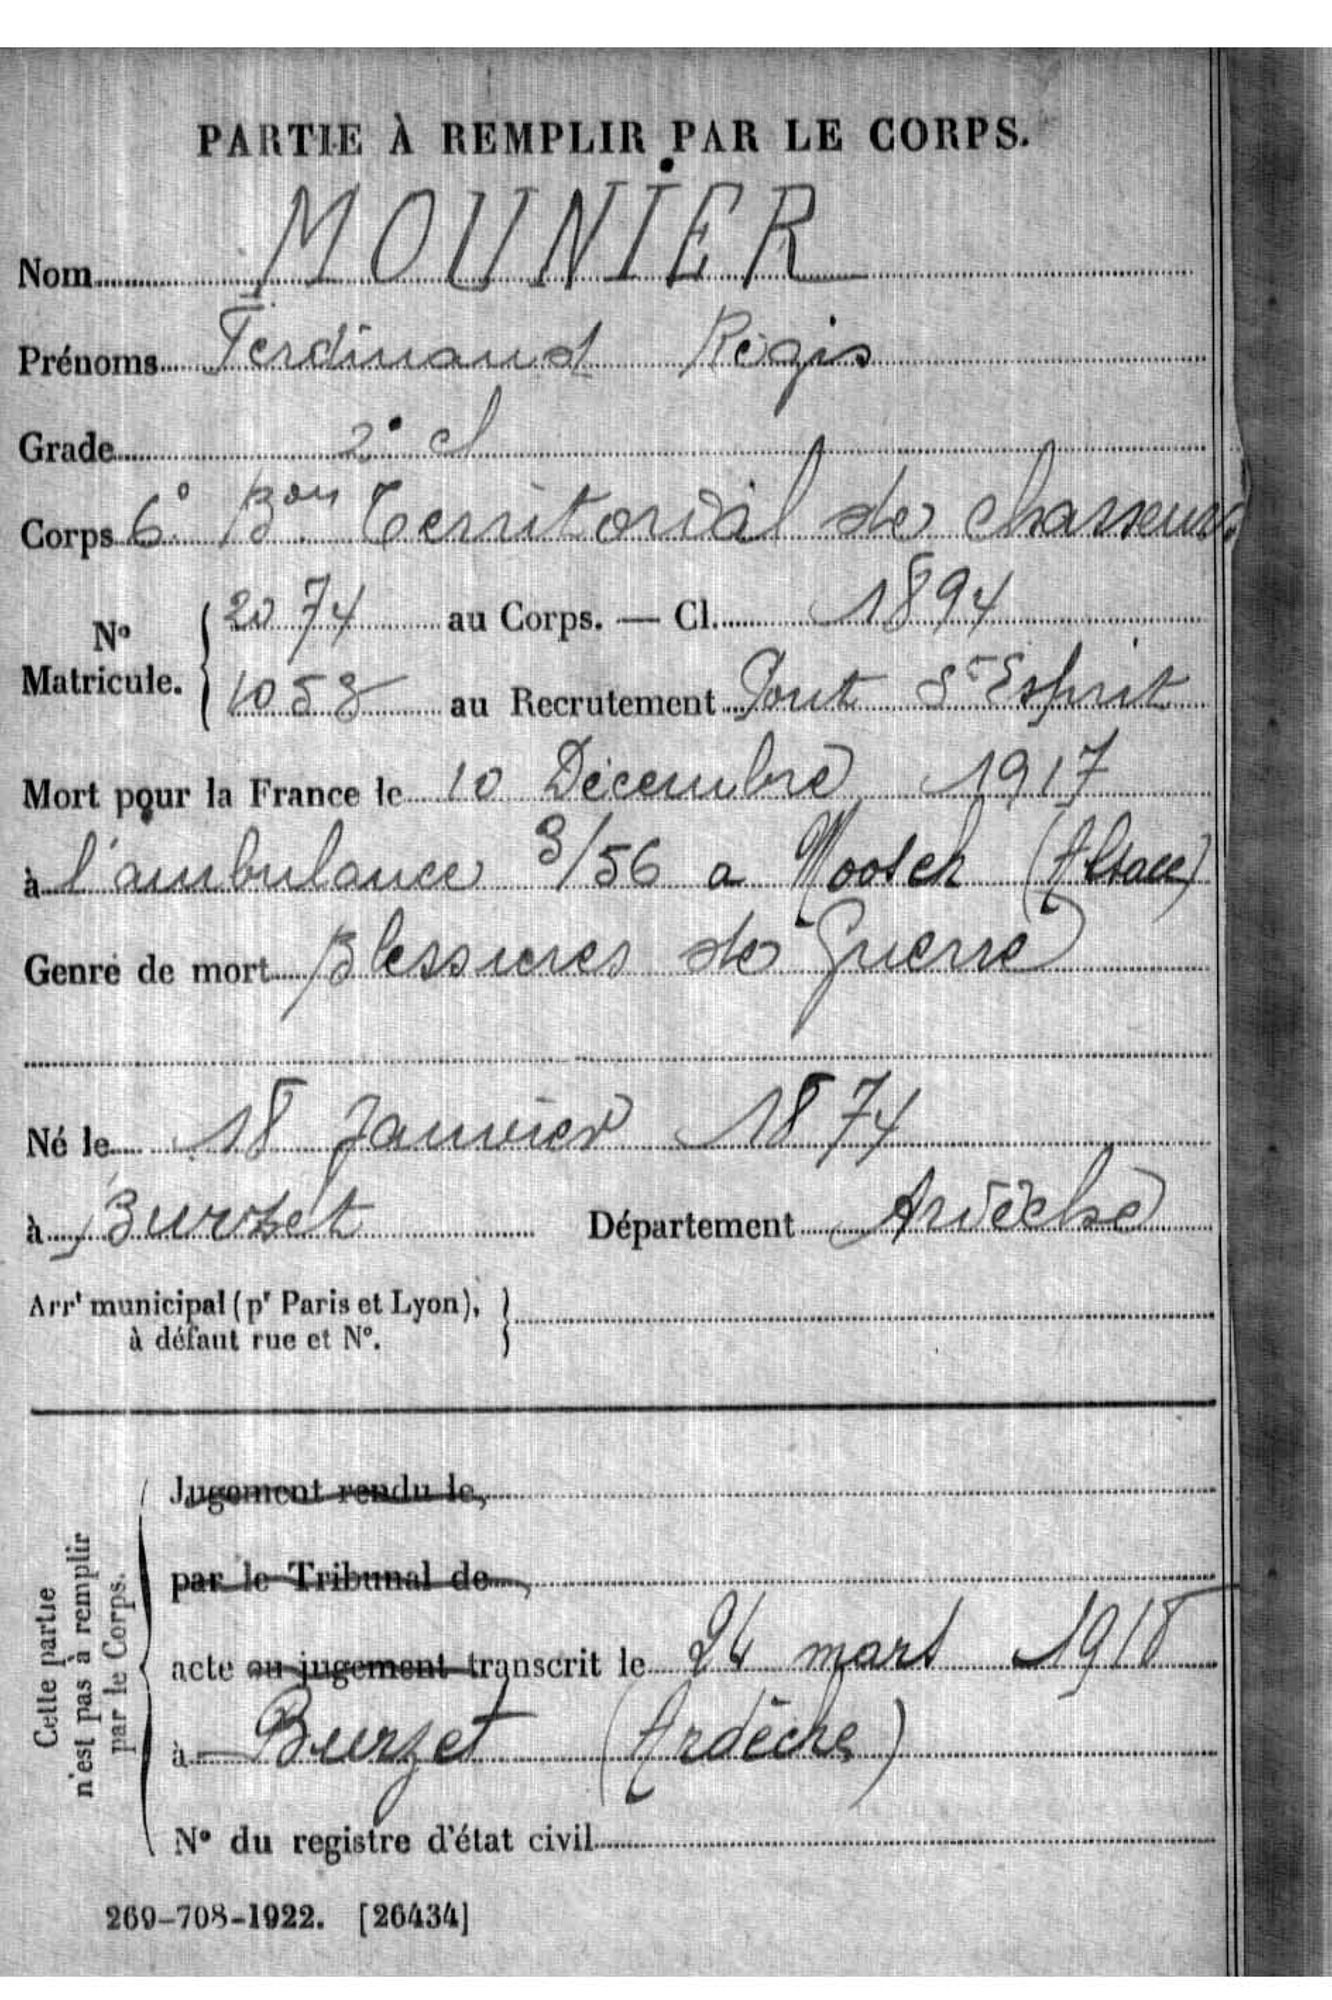 PARTIE À REMPLIR PAR LE CORPS.
Nom MOUNIER
Prénoms Ferdinand Régis
Grade 2e cl
Corps 6e Bon Territorial de chasseurs
No Matricule. { 2074 au Corps. — Cl. 1894
1058 au Recrutement Pont St Esprit
Mort pour la France le 10 Décembre 1917
à l'ambulance 3/56 a Moosch (Alsace)
Genre de mort Blessures de Guerre
Né le 18 Janvier 1874
à Burzet Département Ardèche
Arrt municipal (pr Paris et Lyon), à défaut rue et No. }
Cette partie n'est pas à remplir par le Corps.
Jugement rendu le,
par le Tribunal de
acte ou jugement transcrit le 24 mars 1918
à Burzet (Ardèche)
No du registre d'état civil
269-708-1922. [26434]